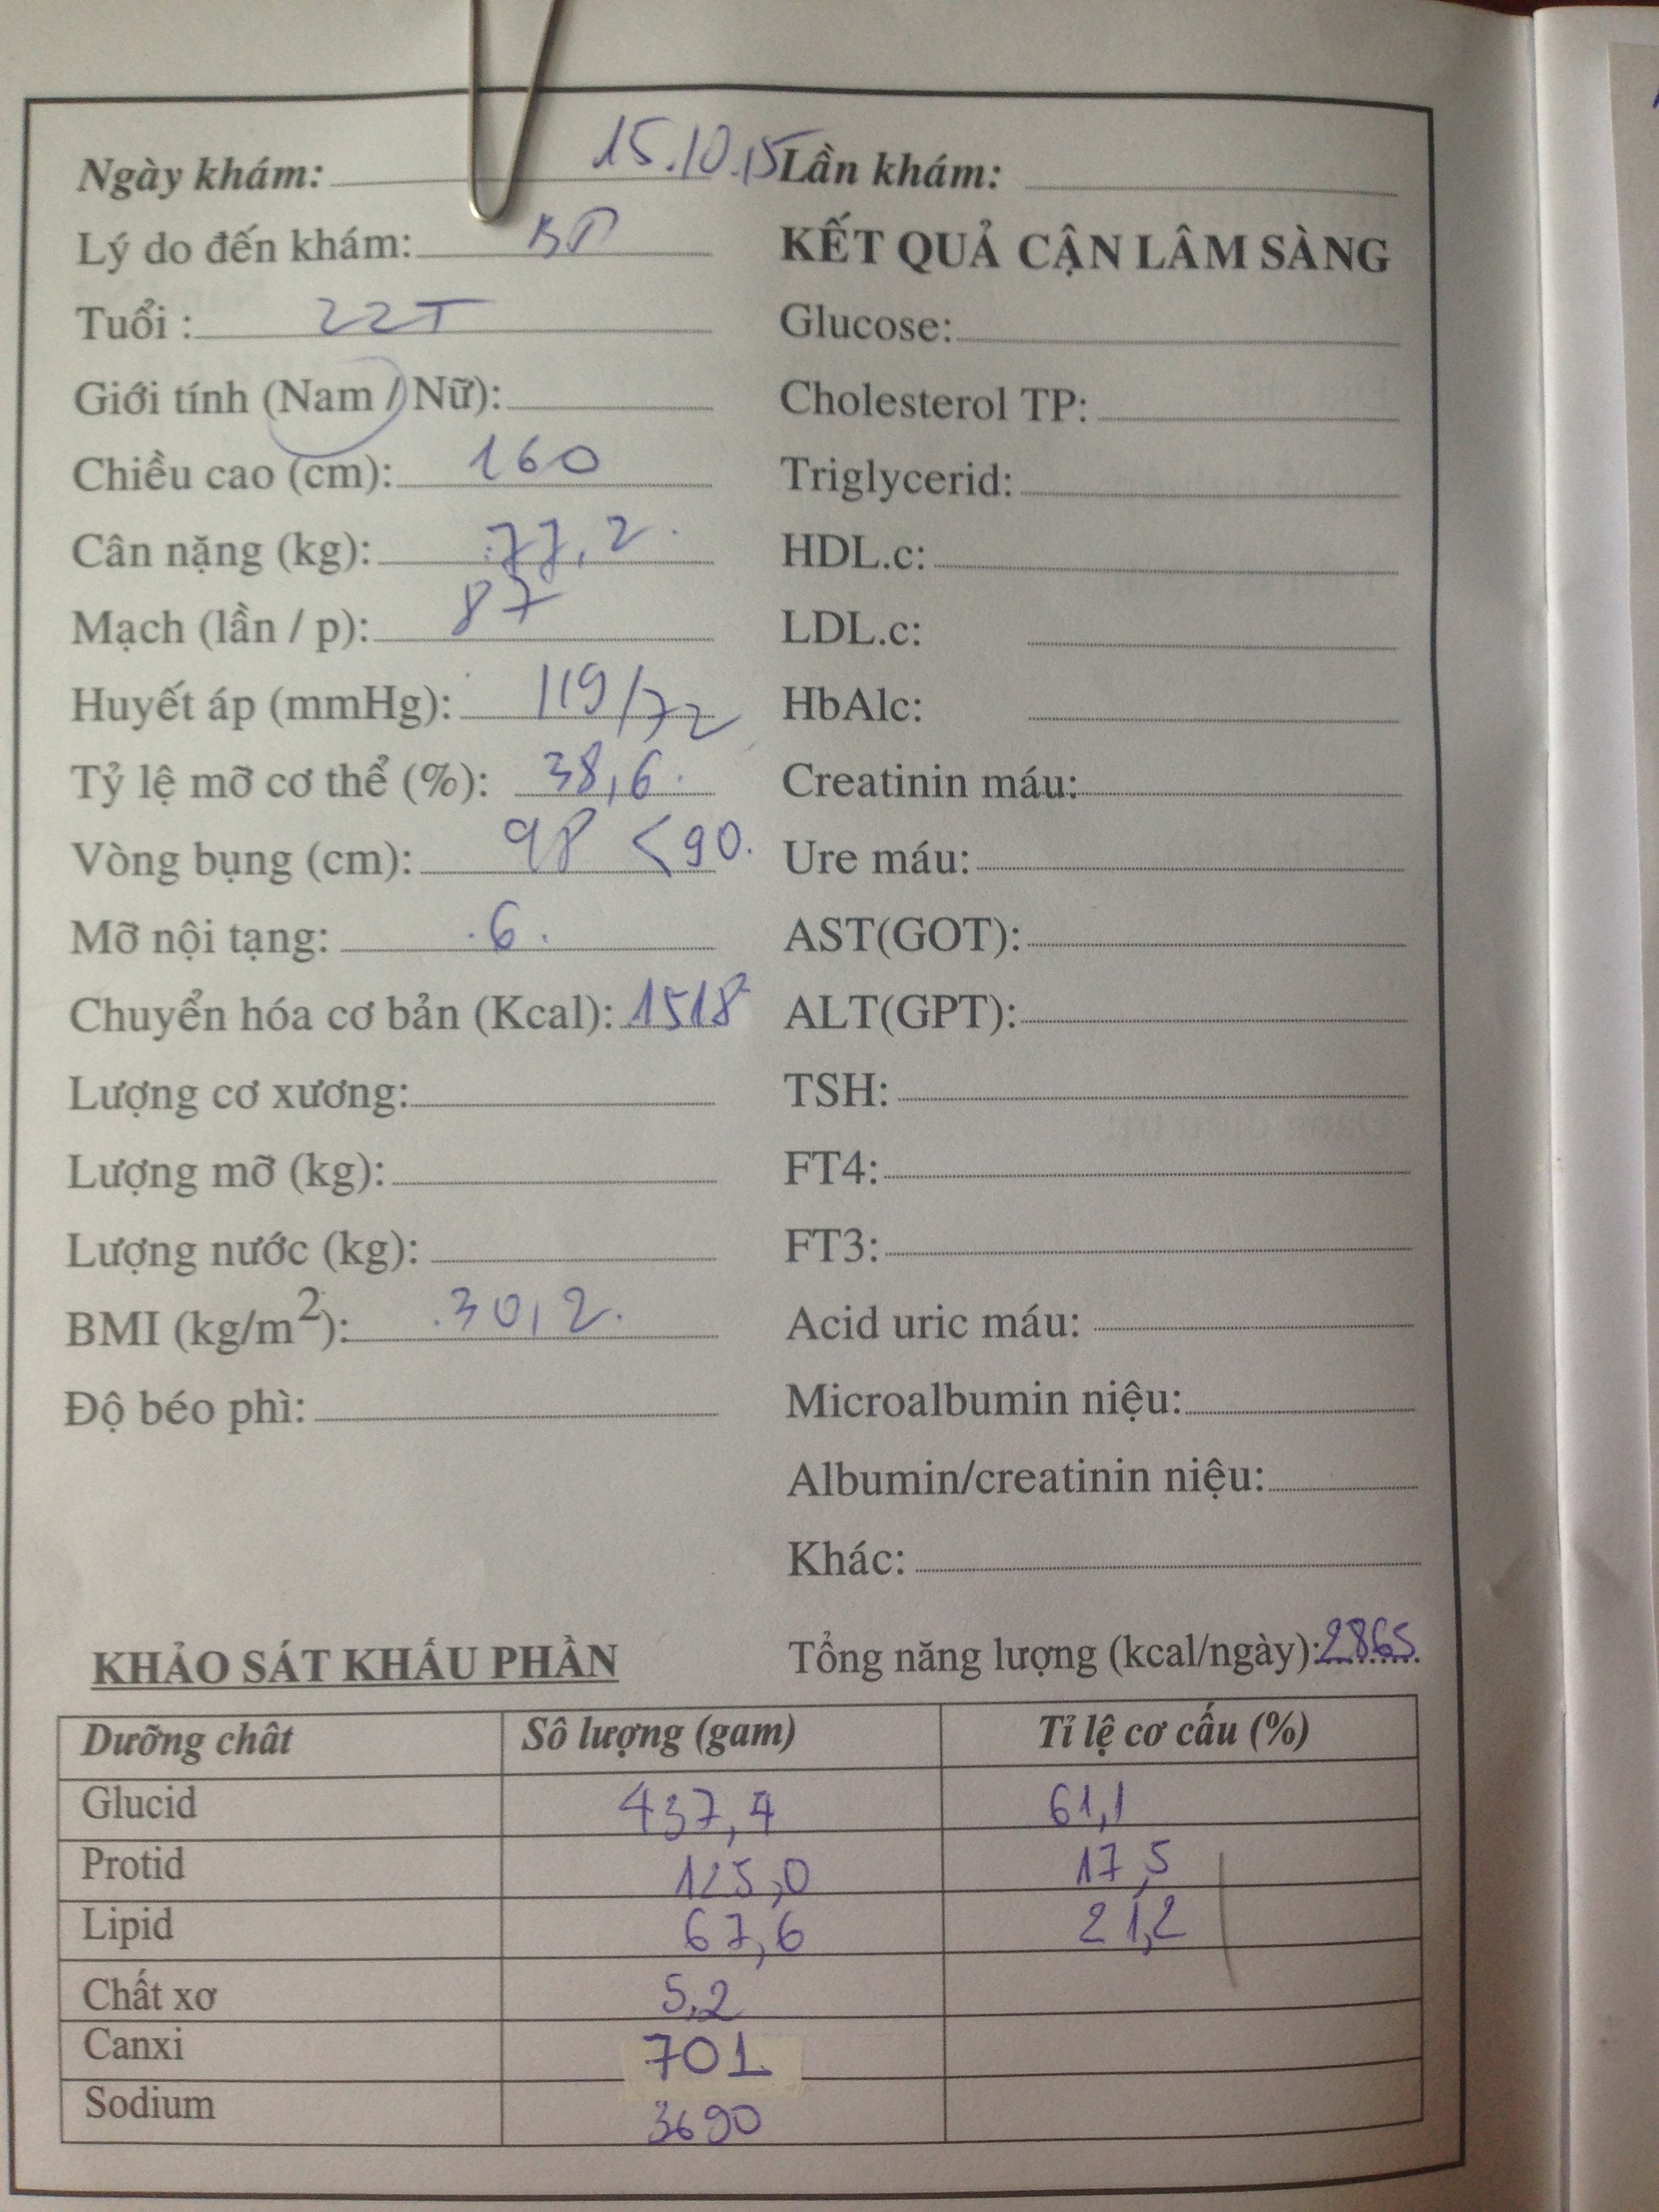 Ngày khám: 15.10.15
Lý do đến khám: BP
Tuổi : 22T
Giới tính (Nam / Nữ):
Chiều cao (cm): 160
Cân nặng (kg): 77,2
Mạch (lần / p): 87
Huyết áp (mmHg): 119/72
Tỷ lệ mỡ cơ thể (%): 38,6
Vòng bụng (cm): 98 <90.
Mỡ nội tạng: 6
Chuyển hóa cơ bản (Kcal): 1518
Lượng cơ xương:
Lượng mỡ (kg):
Lượng nước (kg):
BMI (kg/m²): 30,2
Độ béo phì:
Lần khám:
KẾT QUẢ CẬN LÂM SÀNG
Glucose:
Cholesterol TP:
Triglycerid:
HDL.c:
LDL.c:
HbAlc:
Creatinin máu:
Ure máu:
AST(GOT):
ALT(GPT):
TSH:
FT4:
FT3:
Acid uric máu:
Microalbumin niệu:
Albumin/creatinin niệu:
Khác:
KHẢO SÁT KHẨU PHẦN
Tổng năng lượng (kcal/ngày): 2865
Dưỡng chât Sô lượng (gam) Tỉ lệ cơ cấu (%)
Glucid 437,4 61,1
Protid 125,0 17,5
Lipid 67,6 21,2
Chất xơ 5,2
Canxi 701
Sodium 3690